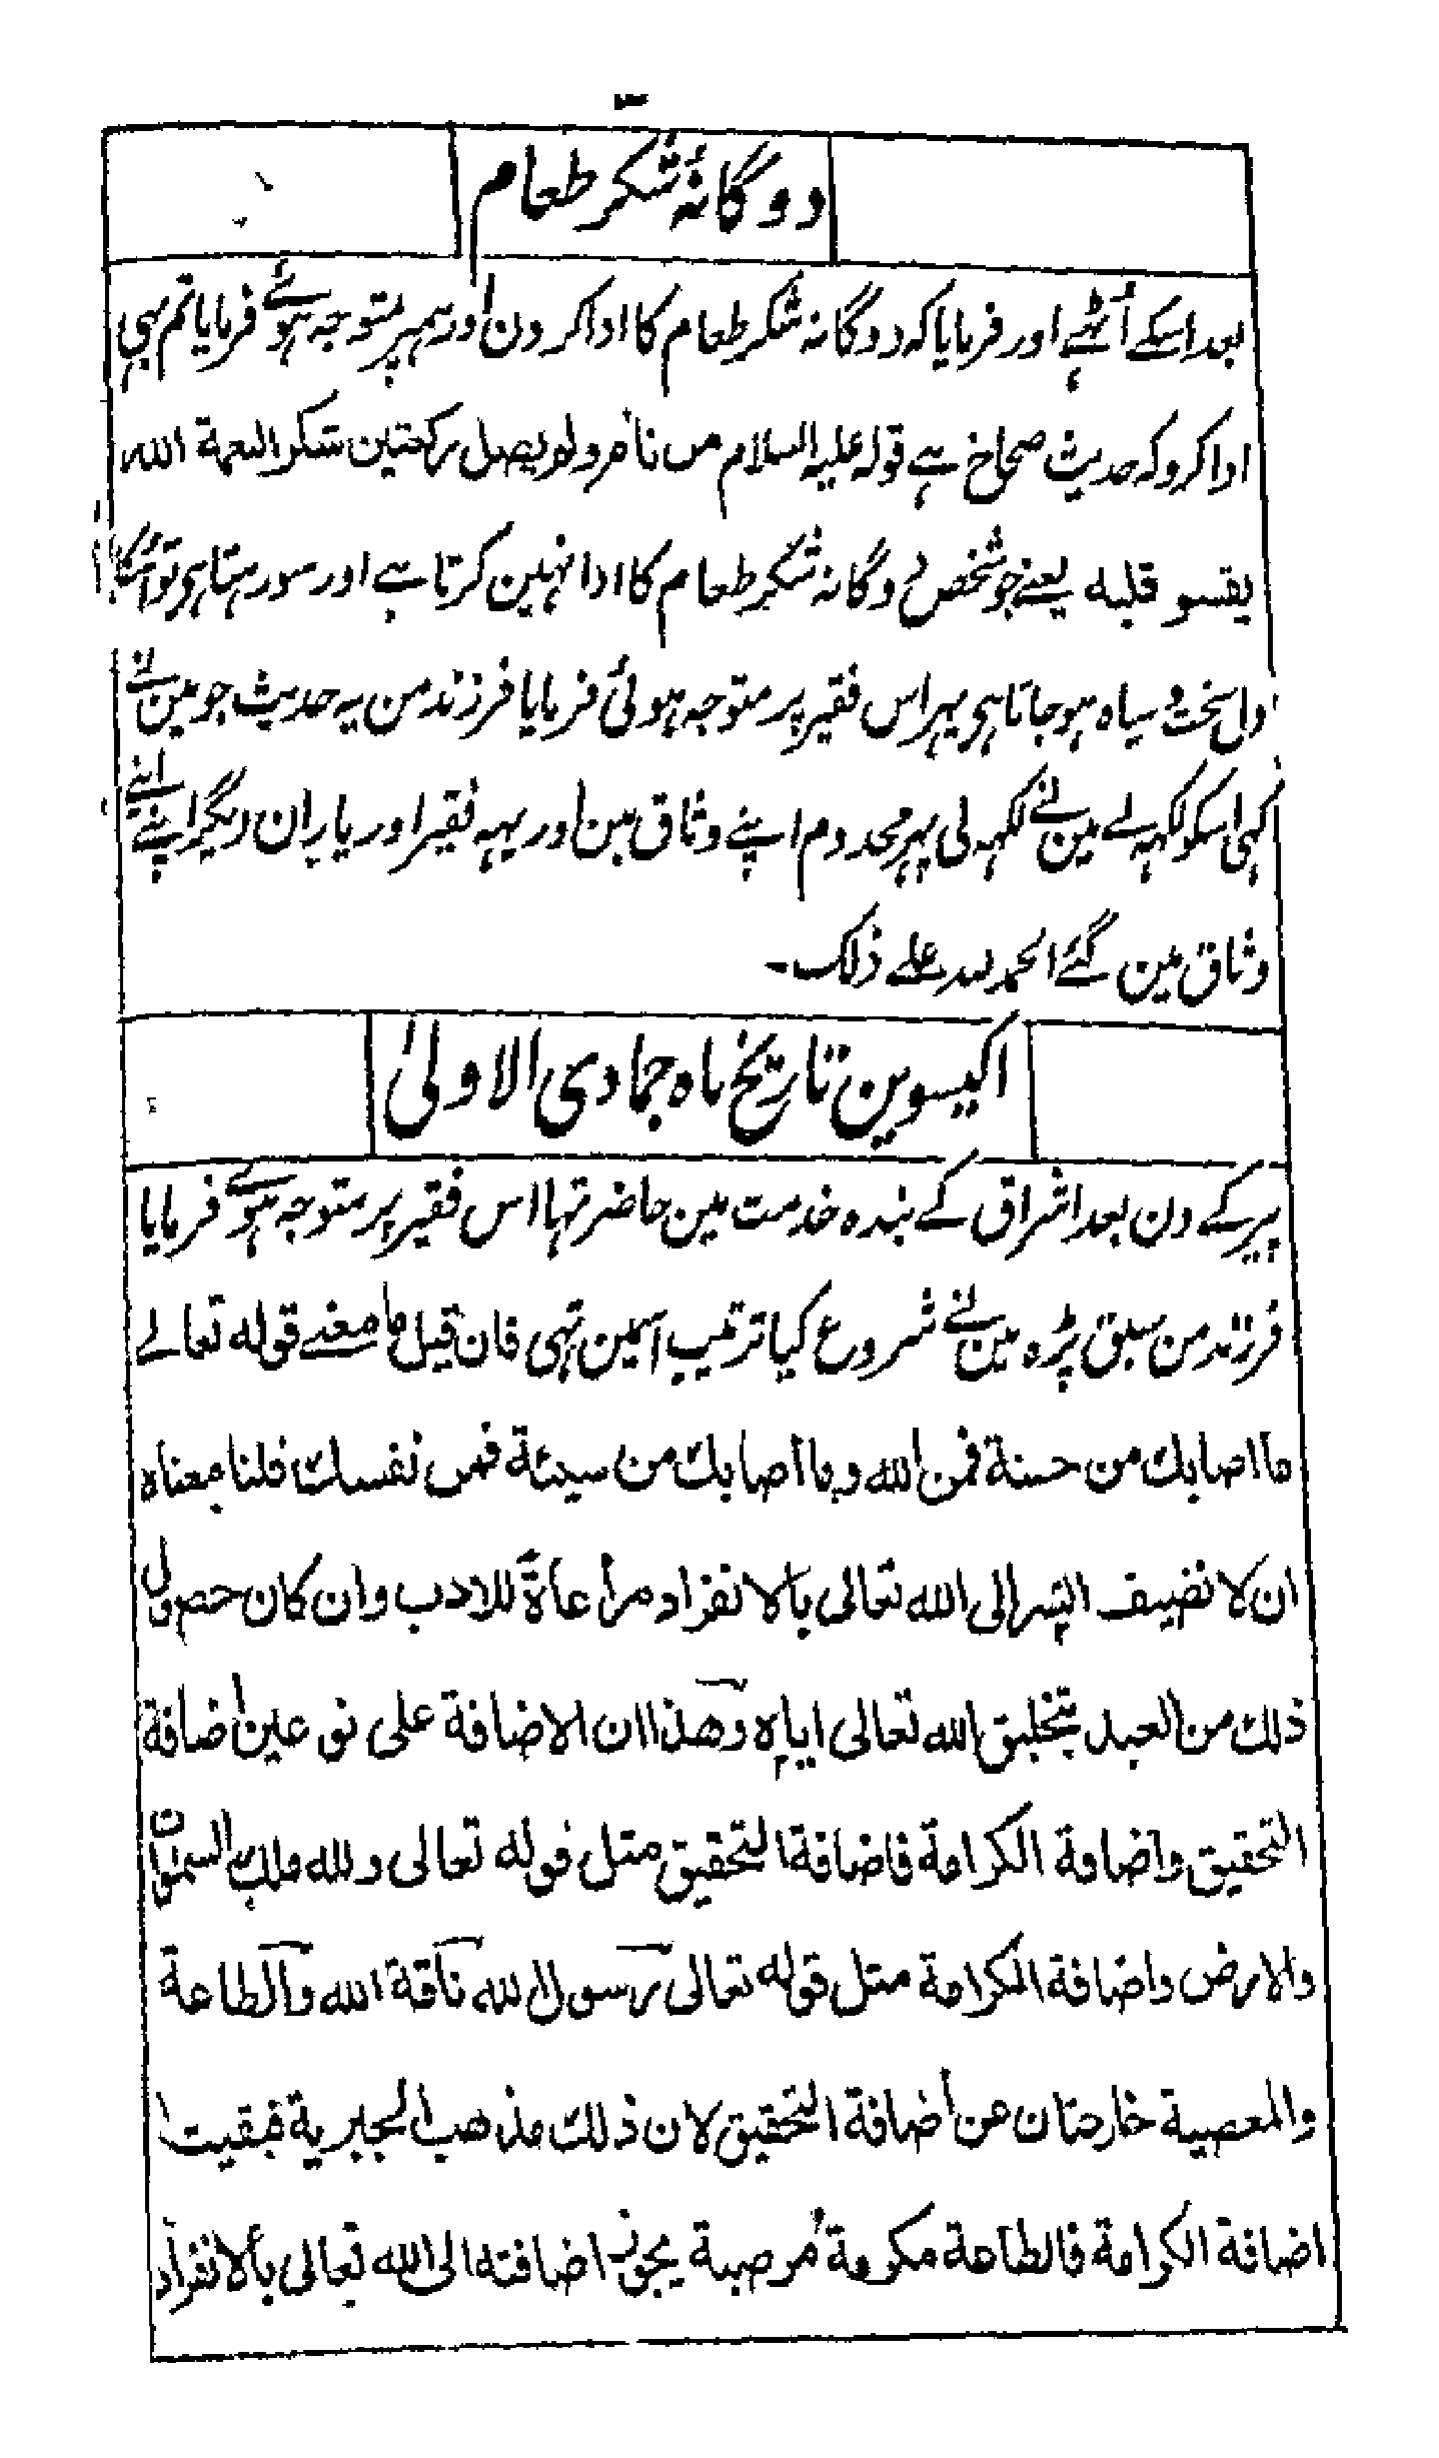 دوگانۂ شکر طعام
بعد اسکے اُٹہے اور فرمایا کہ دوگانہ شکر طعام کا ادا کر دن اور ہمپر متوجہ ہوئے فرمایا تم بہی
ادا کرو کہ حدیث صحاح ہے قولہ علیہ السلام من نام ولم یصل رکعتین شکر النعمة الله
یقسو قلبه یعنے جو شخص دوگانہ شکر طعام کا ادا نہین کرتا ہے اور سو رہتا ہی تو اُسکا
دل سخت و سیاہ ہو جاتا ہی پہر اس فقیر پر متوجہ ہوئی فرمایا فرزند من یہ حدیث جو مین نے
کہی اسکو لکہہ لے مین نے لکہہ لی پہر مخدوم اپنے وثاق مین اور یہہ فقیر اور یاران دیگر اپنے اپنے
وثاق مین گئے الحمد لله علے ذلک۔
اکیسوین تاریخ ماہ جمادی الاولیٰ
پیر کے دن بعد اشراق کے بندہ خدمت مین حاضر تہا اس فقیر پر متوجہ ہوئے فرمایا
فرزند من سبق پڑہ مین نے شروع کیا ترتیب اسمین تہی فان قیل ما معنے قوله تعالے
ما اصابك من حسنة فمن الله وما اصابك من سیئة فمن نفسك قلنا معناه
ان لا نضیف الشر الی الله تعالی بالانفراد مراعاةً للادب وان کان حصول
ذلك من العبد بتخلیق الله تعالی ایاه وهذا ان الاضافة علی نوعین اضافة
التحقیق واضافة الکرامة فاضافة التحقیق مثل قوله تعالی ولله ملك السموات
والارض واضافة الکرامة مثل قوله تعالی رسول الله ناقة الله والطاعة
والمعصیة خارجتان عن اضافة التحقیق لان ذلك مذهب الجبریة فبقیت
اضافة الکرامة فالطاعة مکرمة مرضیة یجوز اضافته الی الله تعالی بالانفراد